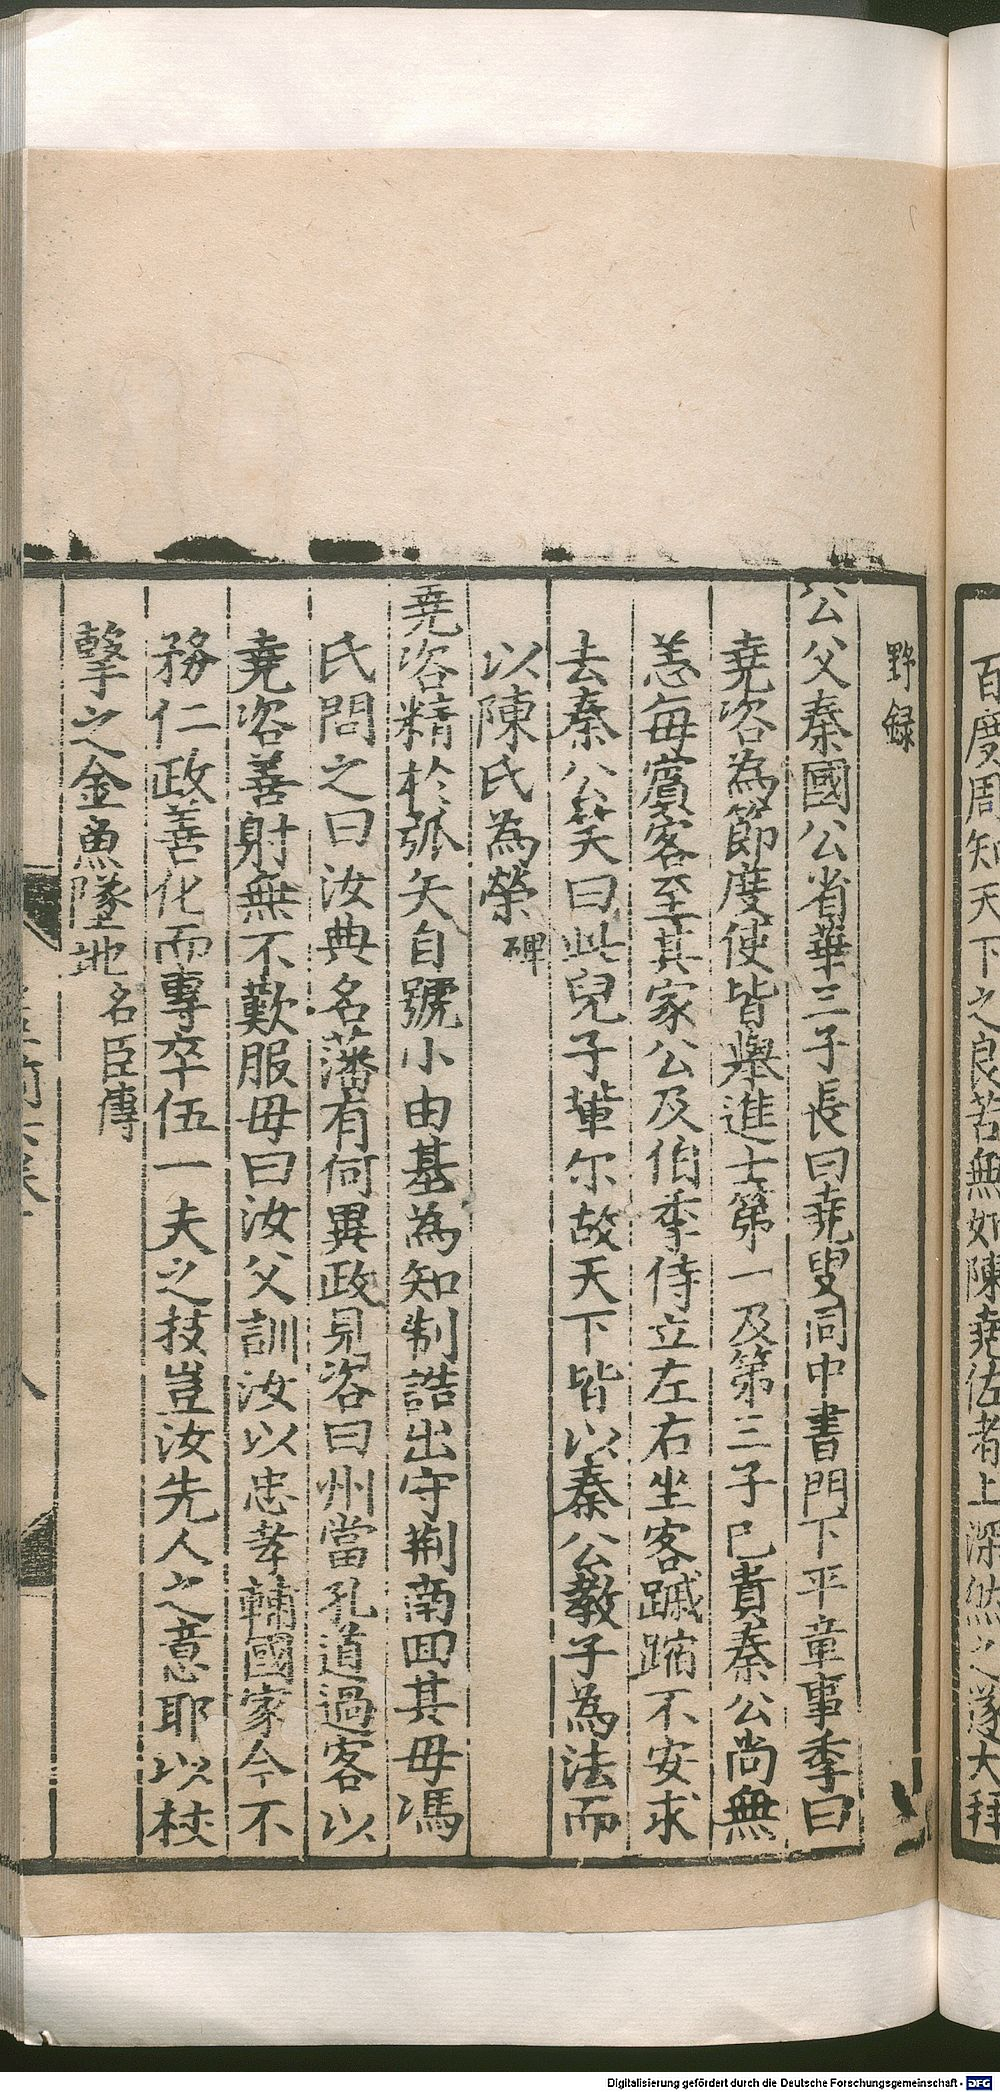 百度周知天下之良苦無如陳堯佐者上深然之遂大拜
野録
公父秦國公省華三子長曰堯叟同中書門下平章事季曰
堯咨為節度使皆舉進士第一及第三子已貴秦公尚無
恙每賓客至其家公及伯季侍立左右坐客踧蹜不安求
去秦公笑曰此兒子輩尔故天下皆以秦公教子為法而
以陳氏為榮 碑
堯咨精於弧矢自號小由基為知制誥出守荆南回其母馮
氏問之曰汝典名藩有何異政見咨曰州當孔道過客以
堯咨善射無不歎服母曰汝父訓汝以忠孝輔國家今不
務仁政善化而專卒伍一夫之技豈汝先人之意耶以杖
擊之金魚墜地 名臣傳
Digitalisierung gefördert durch die Deutsche Forschungsgemeinschaft - DFG